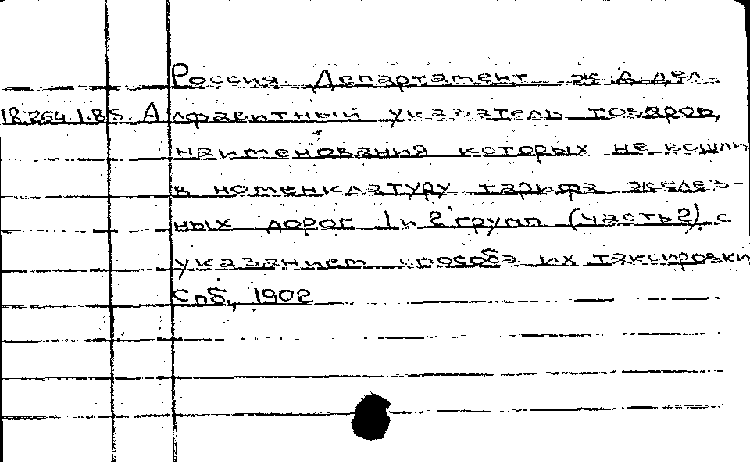 Россия. Департамент ж. д. дел.
18.264.1.85. Алфавитный указатель товаров,
наименования которых не вошли
в номенклатуру тарифа желез-
ных дорог 1 и 2 групп (часть 2) с
указанием способа их таксировки
Спб., 1902